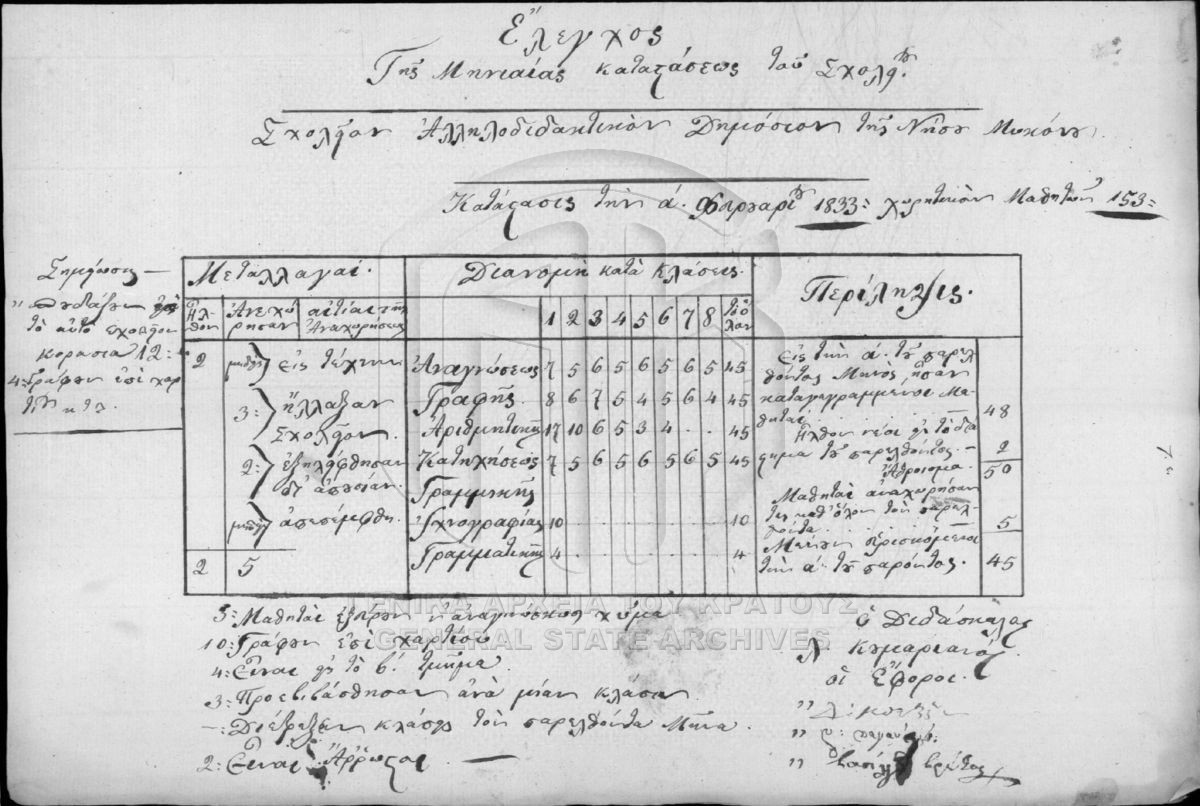 Ἔλεγχος
Τῆς Μηνιαίας καταστάσεως τοῦ Σχολείου
Σχολεῖον Ἀλληλοδιδακτικὸν Δημόσιον τῆς Νήσου Μυκόνου.
Κατάστασις τὴν ά. Φεβρουαρίου 1833= χωρητικὸν Μαθητῶν 153=
Σημείωσις —
τὸ αὐτὸ σχολεῖον
κοράσια 12=
4= Γράφουν ἐπὶ χαρ
Μεταλλαγαί. Διανομὴ κατὰ Κλάσεις. Περίληψις.
Ἦλθον Ἀνεχώρησαν αἰτίαι τῆς Ἀναχωρήσεως 1 2 3 4 5 6 7 8 τὸ ὅλον
2 Εἰς τέχνην Ἀναγνώσεως 7 5 6 5 6 5 6 5 45
3= ἤλλαξαν Σχολεῖον. Γραφῆς. 8 6 7 5 4 5 6 4 45
Ἀριθμητικῆς 17 10 6 5 3 4 . . 45
2= ἐξηλείφθησαν δι' ἀπουσίαν. Κατηχήσεως 7 5 6 5 6 5 6 5 45
Γραμμικῆς
ἀπεπέμφθη. Ἰχνογραφίας 10 . . . . . . . 10
2 5 Γραμματικῆς 4 . . . . . . . 4
Εἰς τὴν ά. τοῦ παρελ
θόντος Μηνὸς ἦσαν
καταγεγραμμένοι Μα
θηταὶ 48
Ἦλθον νέοι εἰς τὸ διά
στημα τοῦ παρελθόντος — 2
Ἄθροισμα. 50
Μαθηταὶ ἀναχωρήσαν
τες καθ' ὅλον τὸν παρελ
θόντα 5
Μένουν εὑρισκόμενοι
τὴν ά. τοῦ παρόντος. 45
ΓΕΝΙΚΑ ΑΡΧΕΙΑ ΤΟΥ ΚΡΑΤΟΥΣ
GENERAL STATE ARCHIVES
3= Μαθηταὶ ἀναγινώσκουν χῦμα
10= Γράφουν ἐπὶ χαρτίου
4= Εἶναι εἰς τὸ β΄. τμῆμα.
3= Προεβιβάσθησαν ἀνὰ μίαν κλάσιν
—= Διέτρεξαν κλάσεις τὸν παρελθόντα Μῆνα.
2= Εἶναι Ἄρρωστοι —
ὁ Διδάσκαλος
Λ Κυμαριανός
οἱ Ἔφοροι.